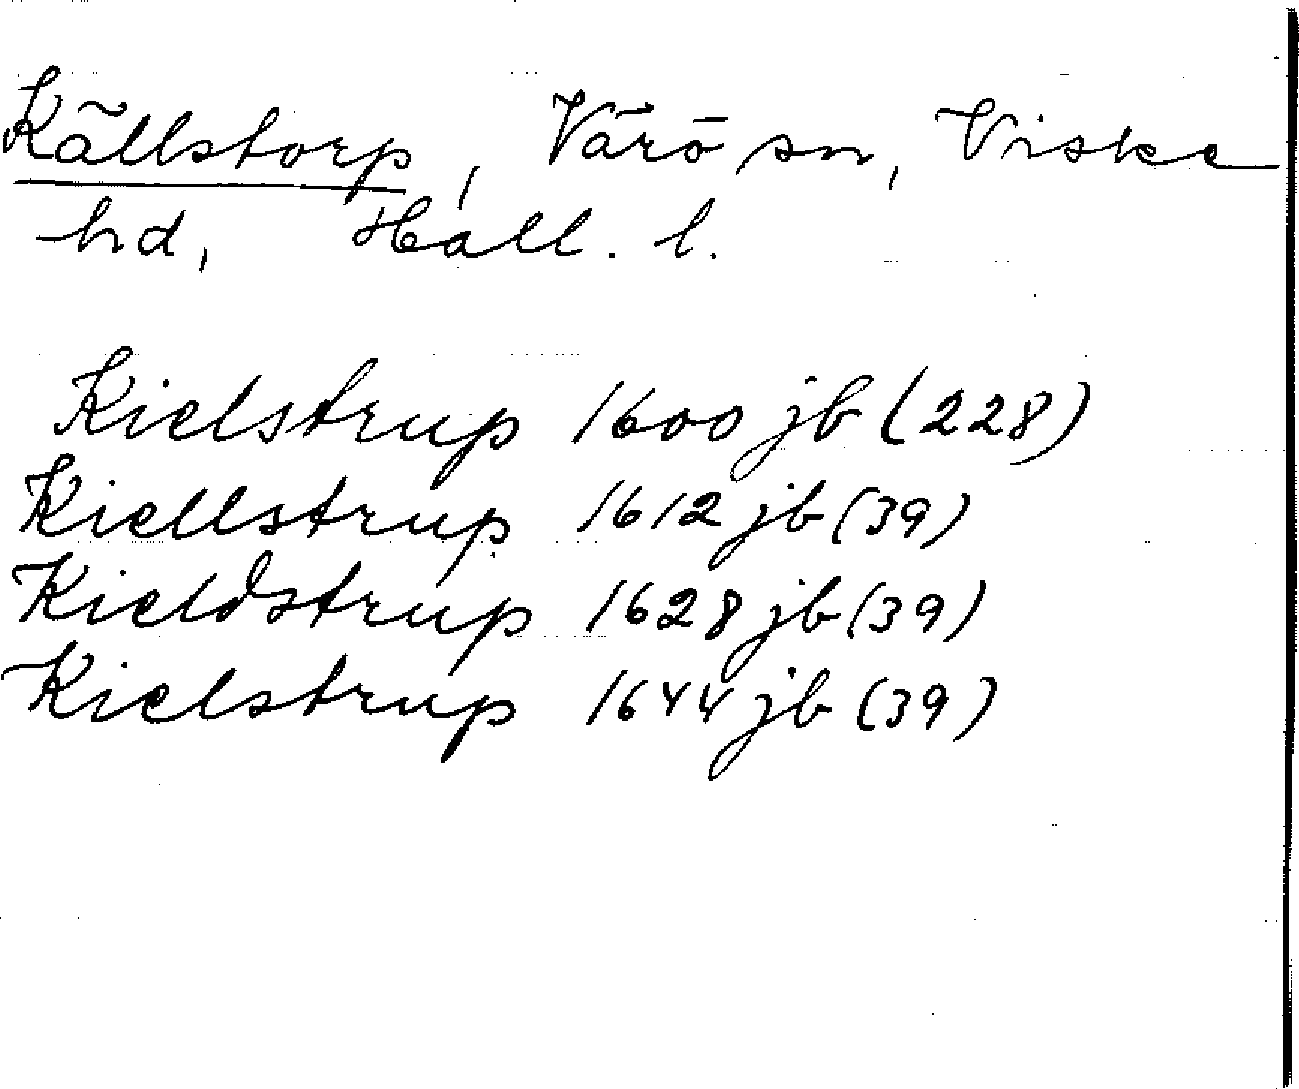 Källstorp, Värö sn, Viske
hd, Hall. l.
Kielstrup 1600 jb (228)
Kiellstrup 1612 jb (39)
Kieldstrup 1628 jb (39)
Kielstrup 1644 jb (39)